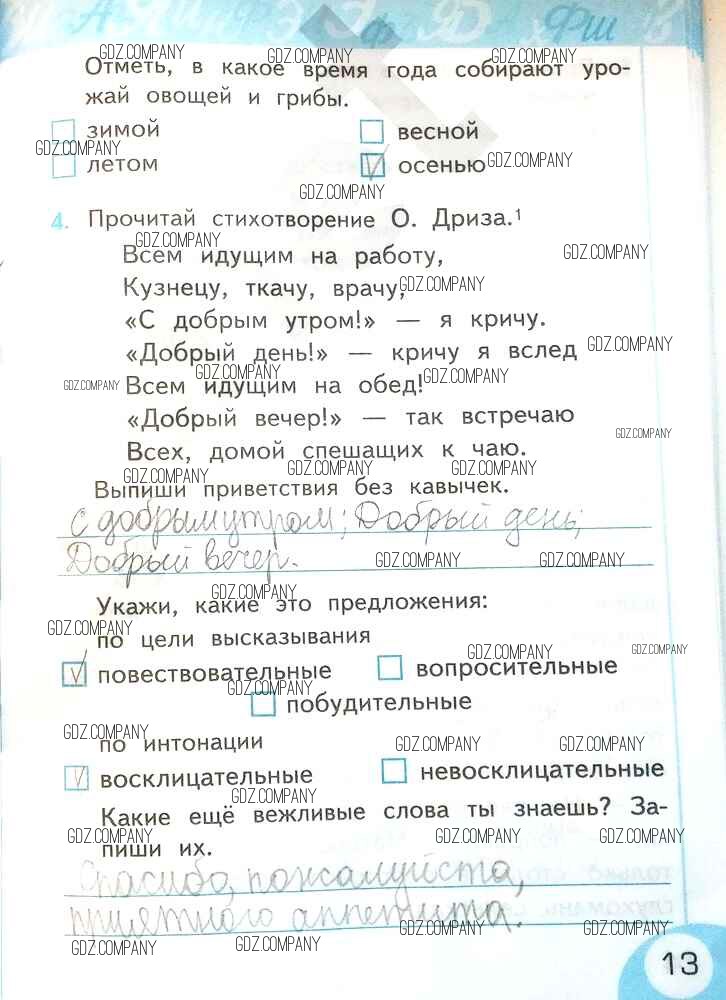 Отметь, в какое время года собирают уро-
жай овощей и грибы.
зимой весной
летом осенью
4. Прочитай стихотворение О. Дриза.¹
Всем идущим на работу,
Кузнецу, ткачу, врачу,
«С добрым утром!» — я кричу.
«Добрый день!» — кричу я вслед
Всем идущим на обед!
«Добрый вечер!» — так встречаю
Всех, домой спешащих к чаю.
Выпиши приветствия без кавычек.
С добрым утром; Добрый день;
Добрый вечер.
Укажи, какие это предложения:
по цели высказывания
повествовательные вопросительные
побудительные
по интонации
восклицательные невосклицательные
Какие ещё вежливые слова ты знаешь? За-
пиши их.
Спасибо, пожалуйста,
приятного аппетита.
13
GDZ.COMPANY